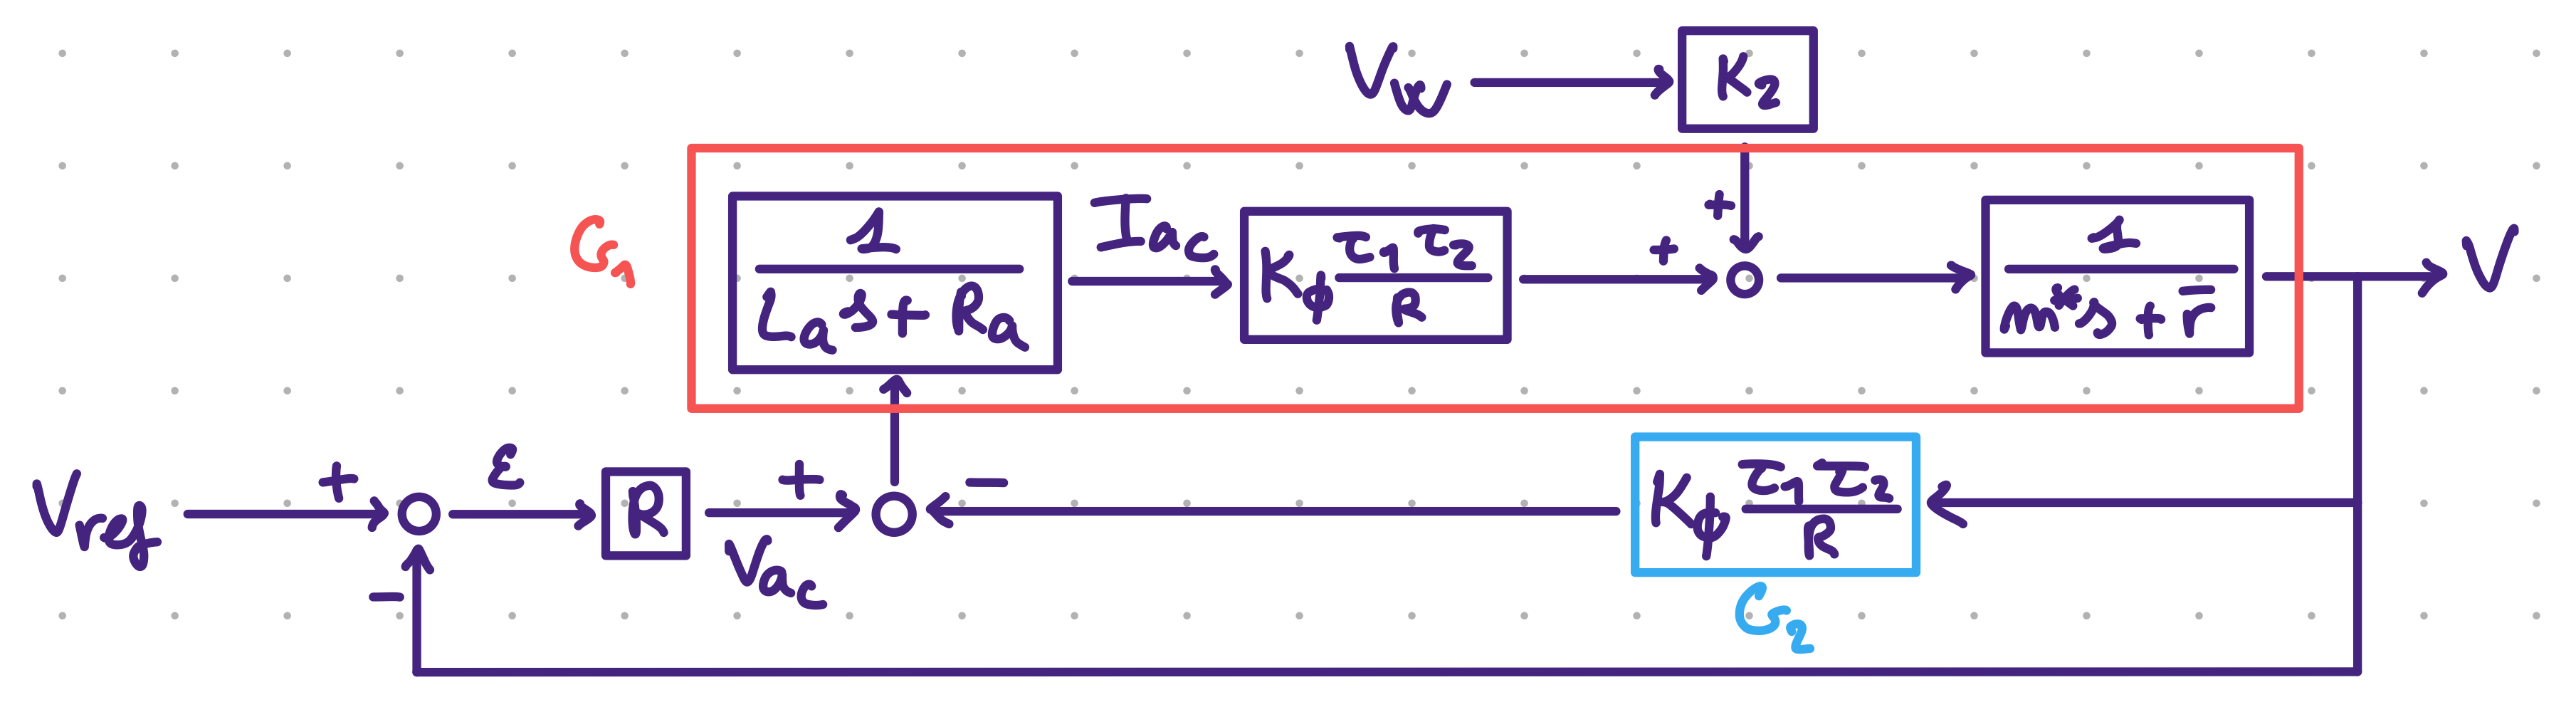 V_w K_2
+
G_1 1 / (L_a s + R_a) I_ac K_ϕ τ_1 τ_2 / R + 1 / (m* s + r̄) V
V_ref + ε R + − K_ϕ τ_1 τ_2 / R
− V_ac G_2